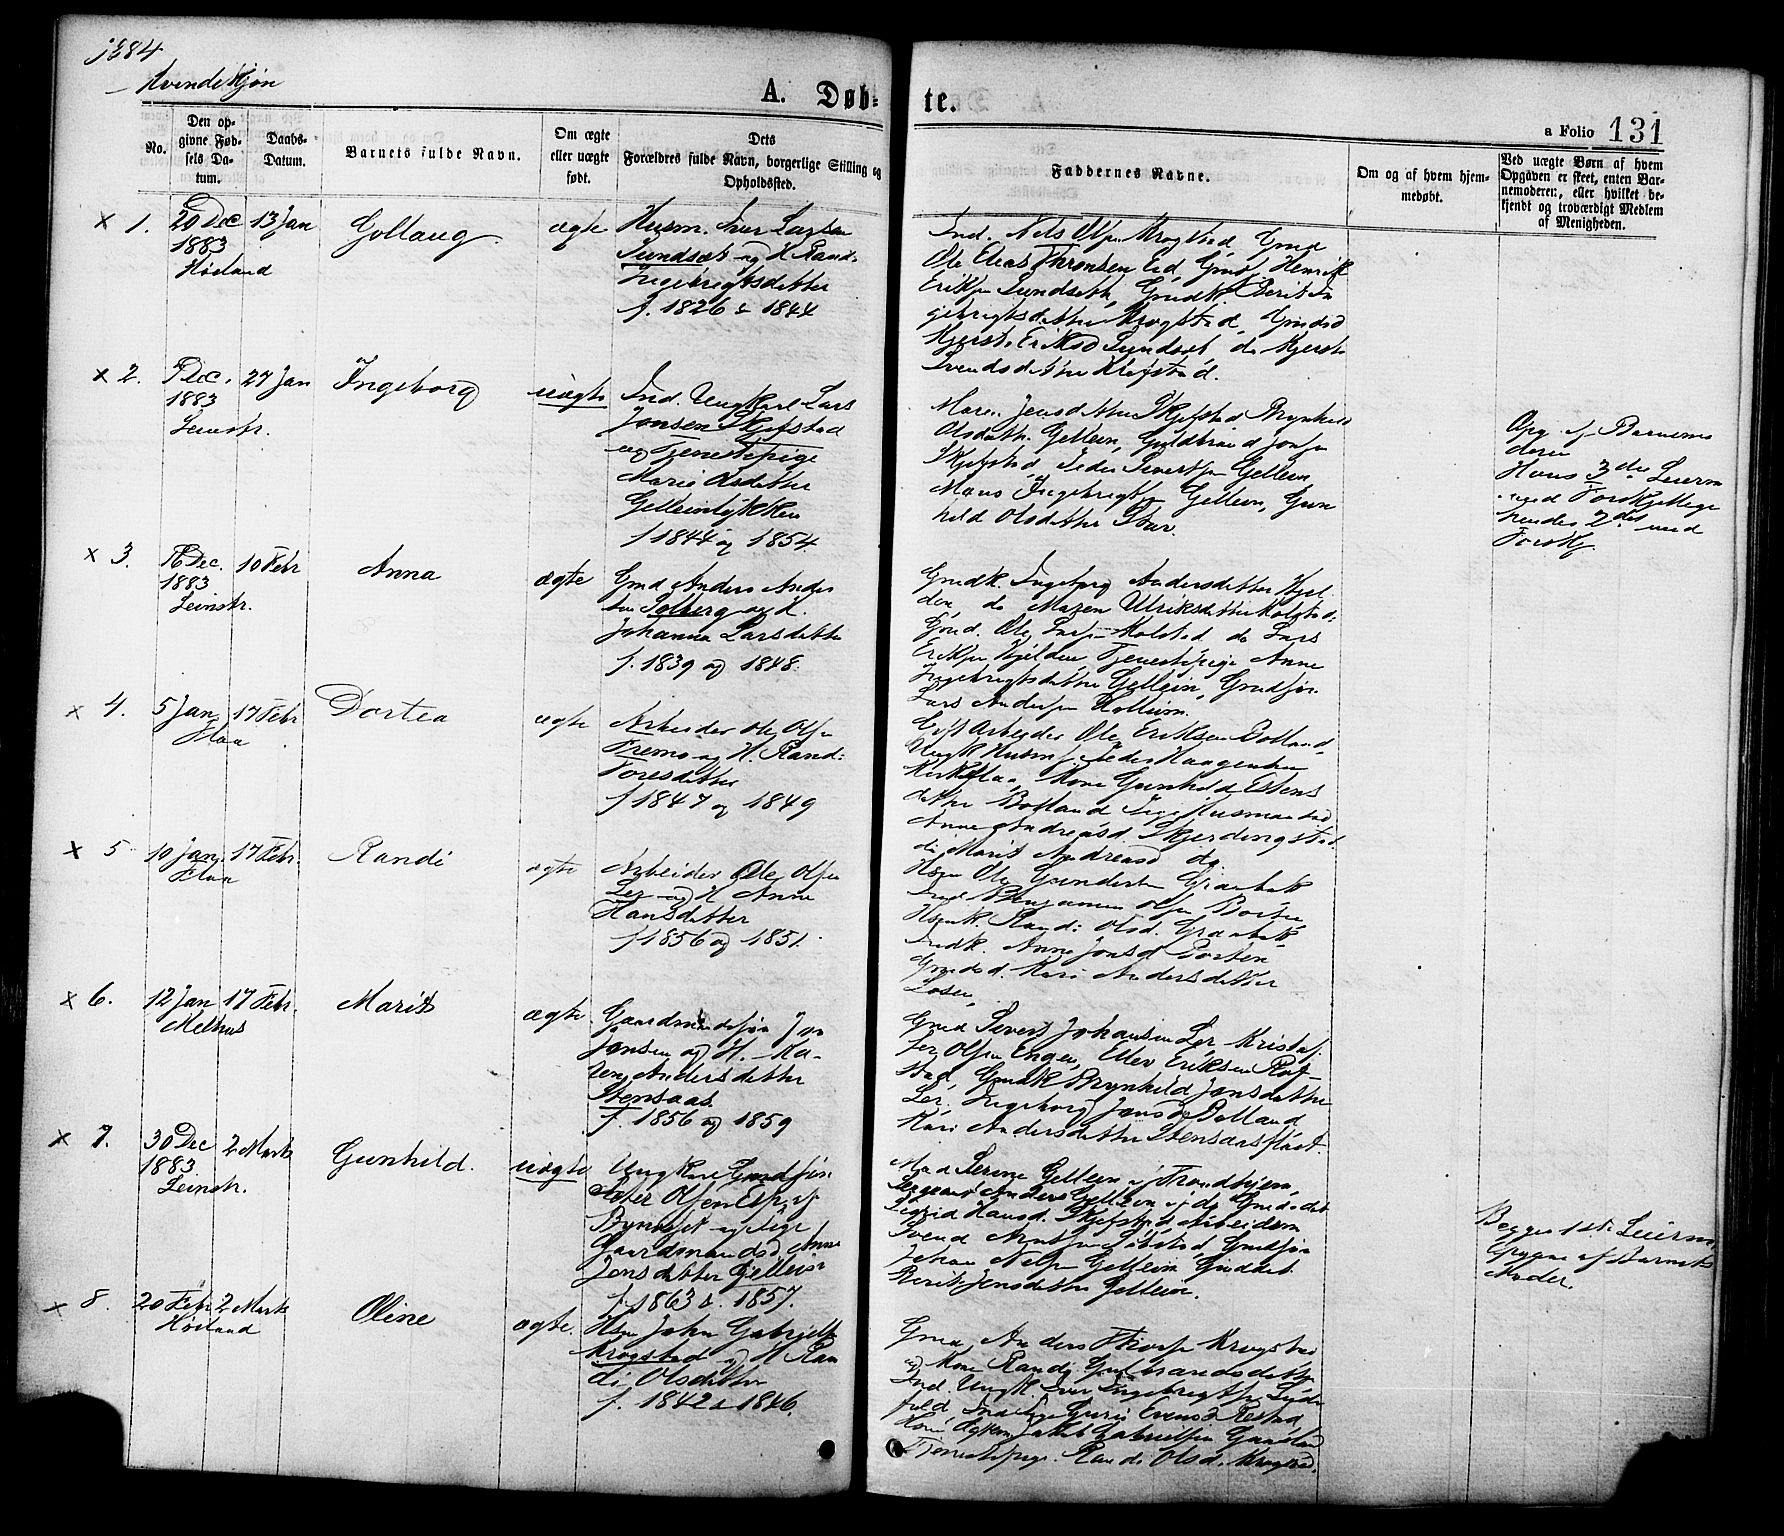 1884
Kvindekjøn
A. Døb-
te.
a Folio 131
No.
Den op-
givne Fød-
sels Da-
tum.
Daabs-
Datum.
Barnets fulde Navn.
Om ægte
eller uægte
født.
Dets
Forældres fulde Navn, borgerlige Stilling og
Opholdssted.
Faddernes Navne.
Om og af hvem hjem-
medøbt.
Ved uægte Børn af hvem
Opgaven er skeet, enten Bar-
nemoderen, eller hvilket be-
kjendt og troværdigt Medlem
af Menigheden.
x 1. 20 Dec 13 Jan Gollaug. ægte
1883
Høiland
Husm. Iver Larsen
Sundset og H. Rand:
Ingebrigtsdatter
f. 1826 & 1844
Ind. Nels Olsen Krogstad, Gmd
Ole Elias Thronsen Eid, Gmdsj Henrik
Eriksen Sundseth, Gmdk Berit In
gebrigtsdatter Krogstad, Gmdsd
Kjersti Eriksd Sundset, do Kjersti
Svendsdatter Krogstad.
x 2. 9 Dec. 27 Jan Ingeborg uægte
1883
Leinstr.
Ind. Ungkarl Lars
Jonsen Skjefstad
og Tjenestepige
Marie Olsdatter
Gelleinlykken
f 1844 og 1854
Maren Jensdatter Skjefstad Brynhild
Olsdatter Gellein, Guldbrand Jonsen
Skjefstad, Peder Sivertsen Gellein,
Mons Ingebrigtsen Gellein, Gun
hild Olsdatter
Opg. af Barnemo
deren
Hans 3die Leierm
med Forskjellige
hendes 2det med
Forskj.
x 3. 16 Dec. 10 Febr Anna ægte
1883
Leinstr.
Gmd Anders Ander
sen Solberg og H.
Johanna Larsdatter
f. 1839 og 1848.
Gmdk. Ingeborg Andersdatter Kjel
den, do Maren Ulriksdatter Kolstad,
Gmd. Ole Larsen Kolstad do Lars
Eriksen Kjelden, Tjenestepige Anne
Ingebrigtsdatter Gellein, Gmdsøn
Lars Andersen
x 4. 5 Jan 17 Febr Dortea ægte
Flaa
Arbeider Ole Olsen
Fremo og H. Rand:
Toresdatter
f 1847 og 1849
Gift Arbeider Ole Eriksen Bolland
Ungk Husmsj. Peder Haagensen
Kirkflaa, Kone Gunhild Estens
datter Bolland Pige Husmandsd
Anne Andreasd. Skjerdingstad
do Marit Andreasd do.
x 5 10 Jan 17 Febr. Randi ægte
Flaa
Arbeider Ole Olsen
Ler og H Anne
Hansdatter
f 1856 og 1851.
Hsm Ole Gundersen Graabak
Ind Benjamin Olsen Borten
Hsmk. Randi Olsd. Graabak
Indk. Anne Jonsd Borten
Gmdsd. Kari Andersdatter
Loser
x 6. 12 Jan 17 Febr. Marit ægte.
Melhus
Gaardmandsøn Jon
Jonsen og H. Ka-
ren Andersdatter
Stensaas
f. 1856 og 1859
Gmd Sivert Johansen Ler Kristof-
fer Olsen Engen, Ellev Eriksen Rof-
stad, Gmdk Brynhild Jonsdatter
Ler, Ingeborg Jonsd Bolland
Kari Andersdatter Stensaas flaat.
x 7. 30 Dec 2 Marts Gunhild. uægte
1883.
Leinstr.
Ungkarl Gmdsøn
Peter Olsen Esp af
Bynæset og Pige
Gaardmandsd. Anne
Jonsdatter Gjellein
f. 1863 & 1857.
Mad Serine Gellein i Trondhjem,
Sergeant Anders Gellein i do Gmdsdat
Sigrid Hansd. Skjefstad Arbeidern
Svend Gmdsøn
Johan Nelsen Gellein Gmdsdat
Berit Jensdatter Gellein.
Begges 1ste Leierm.
Opgave af Barnets
Moder.
x 8. 20 Febr 2 Marts Oline ægte.
Høiland
Hsm John Gabrielsen
Krogstad og H Ran
di Olsdatter
f. 1842 & 1846.
Gmd Anders Thorsen Krogstad
og Kone Randi Gulbrandsdatter
Ind. Ungk. Iver Ingebrigtsen
Ind Pige Guri Evensd Rostad
Jakob Gabrielsen
Tjenestepige Randi Olsd. Krogstad.